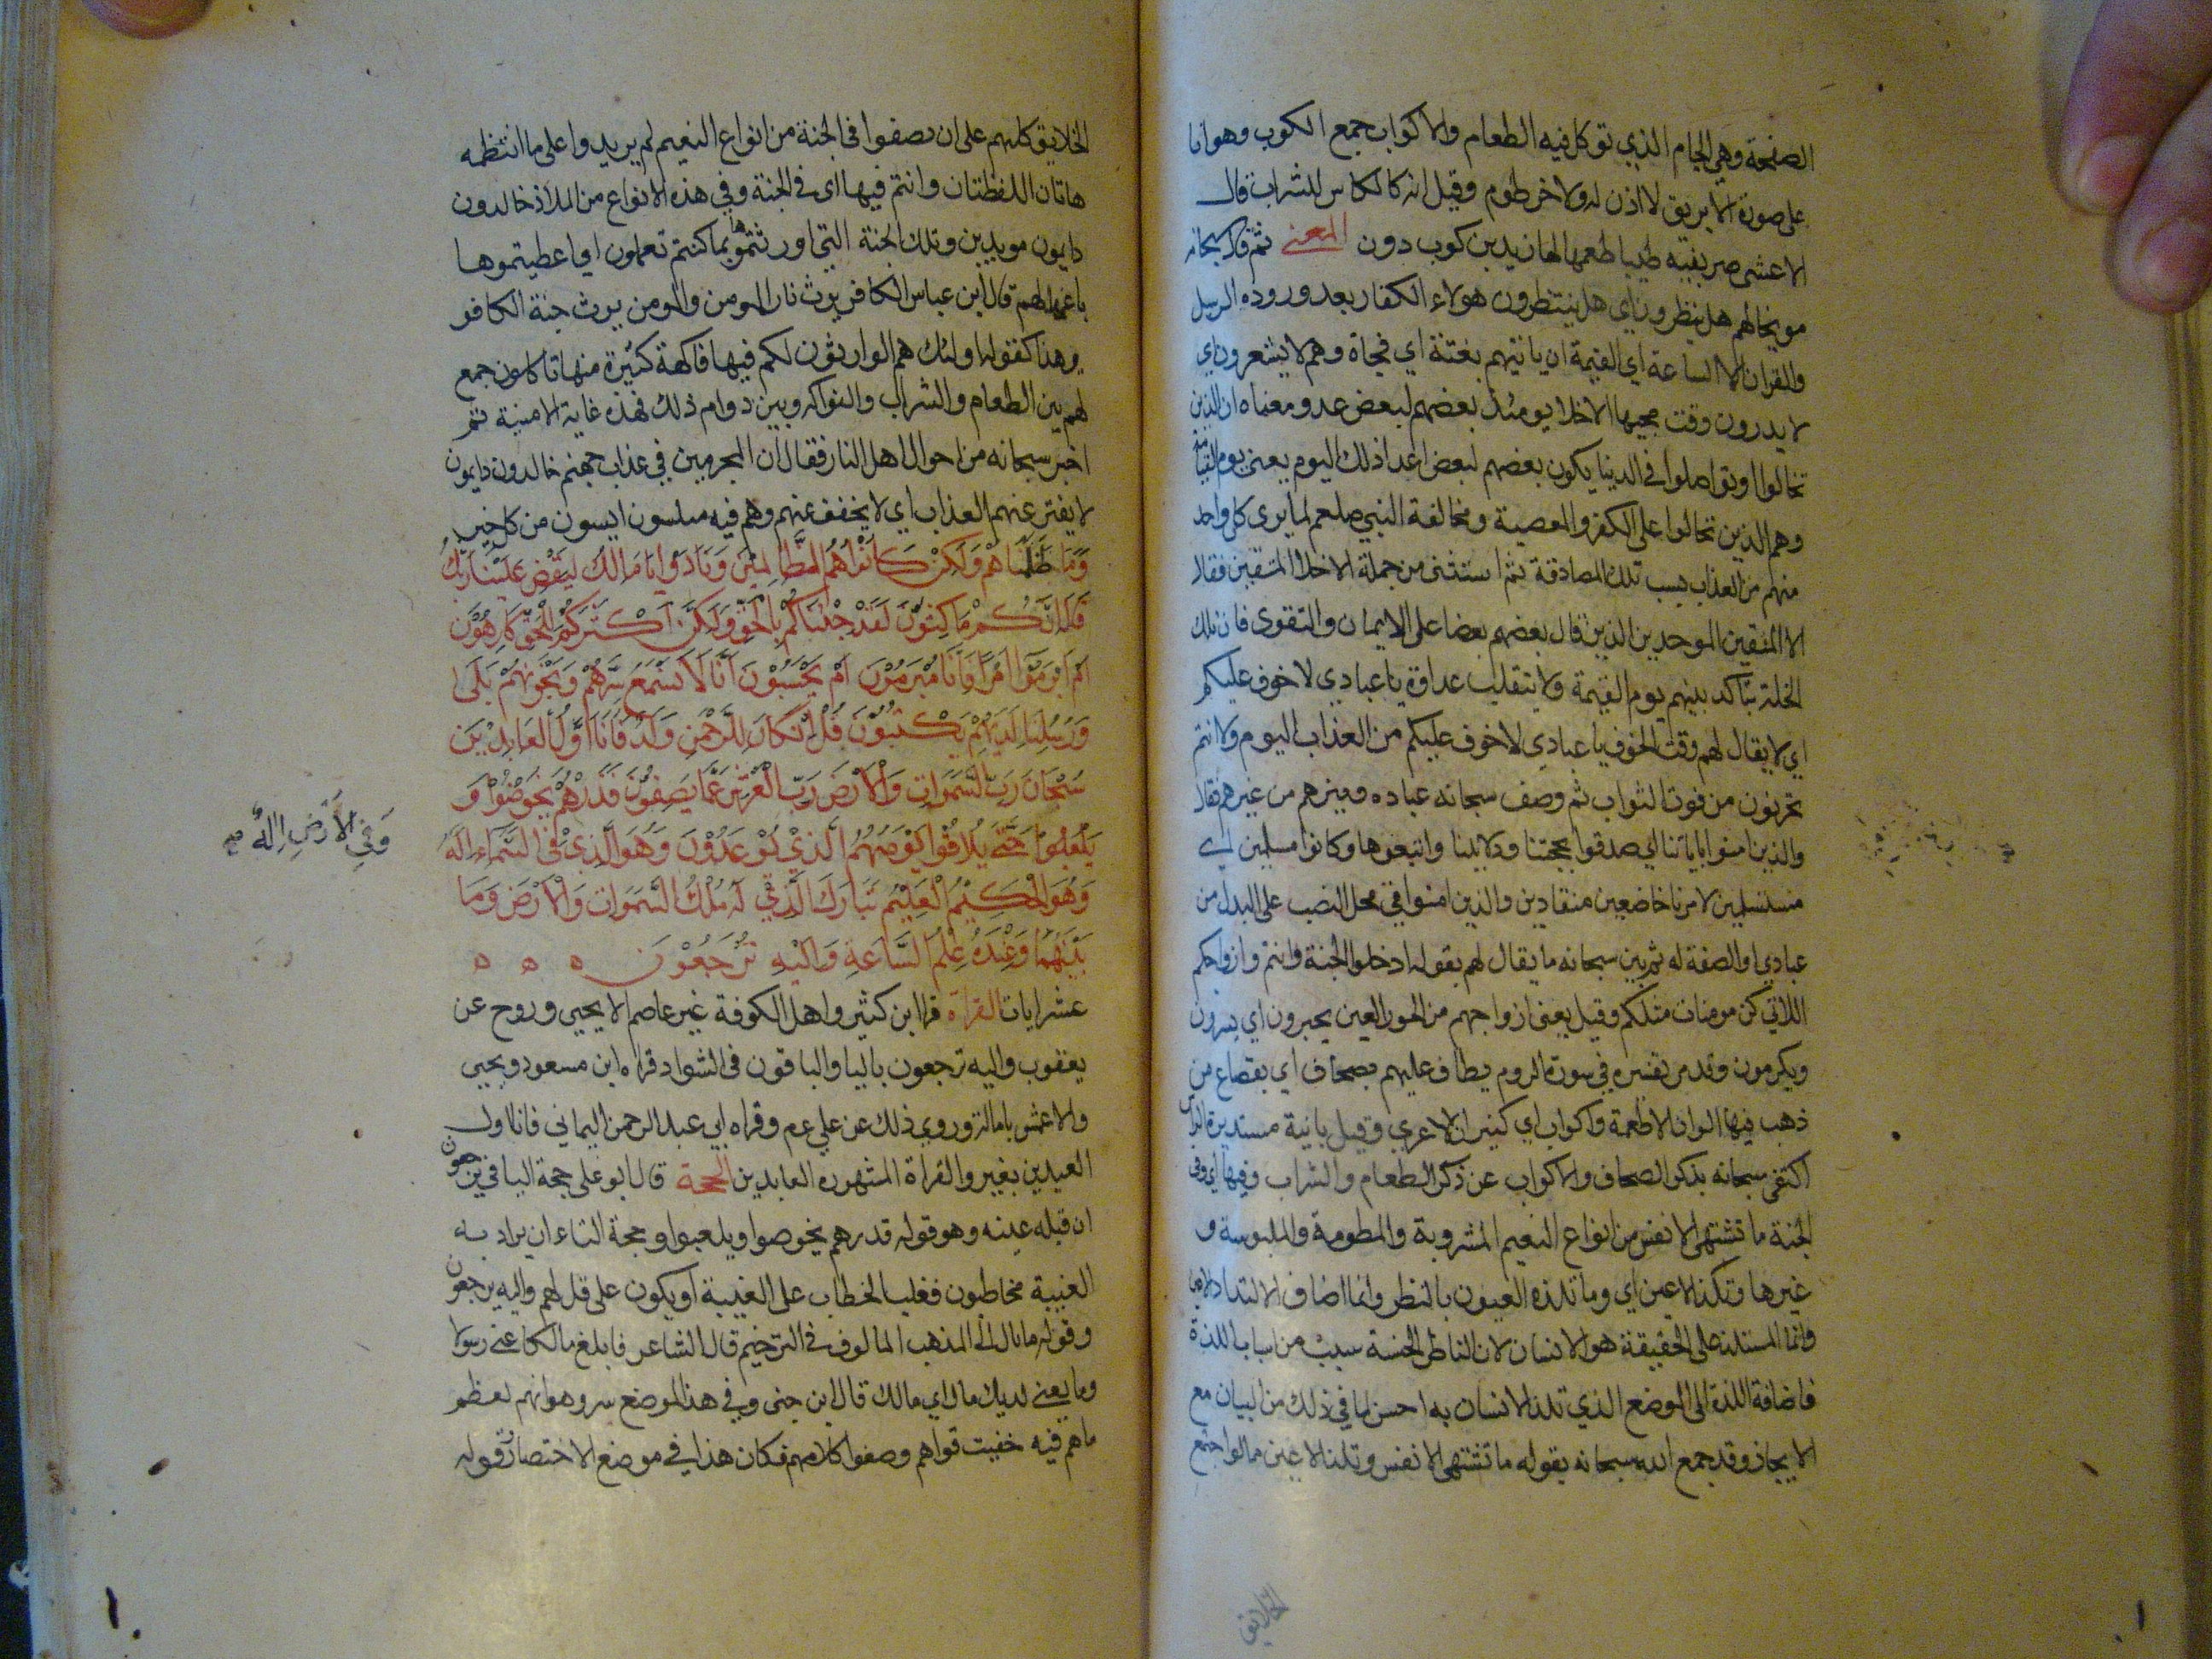 الصفحة وهي الجام الذي توكل فيه الطعام والاكواب جمع الكوب وهو انا
على صورة الابريق لا اذن له ولا خرطوم وقيل انه كالكاس للشراب قال
الاعشى صريفيه طيبا طعمها لها زبد بين كوب ودن المعنى ثم قال سبحانه
موبخا لهم هل ينظرون اي هل ينتظرون هولاء الكفار بعد ورود الرسل
والقران الا الساعة اي القيمة ان ياتيهم بغتة اي فجاة وهم لا يشعرون اي
لا يدرون وقت مجيها الاخلا يومئذ بعضهم لبعض عدو معناه ان الذين
تخالوا وتواصلوا في الدنيا يكون بعضهم لبعض اعدا ذلك اليوم يعنى يوم القيامة
وهم الذين تخالوا على الكفر والمعصية ومخالفة النبي صلعم لما يرى كل واحد
منهم من العذاب بسبب تلك المصادقة ثم استثنى من جملة الاخلا المتقين فقال
الا المتقين الموحدين الذين قال بعضهم بعضا على الايمان والتقوى فان تلك
الخلة تتاكد بينهم يوم القيمة ولا يتقلب عداوة يا عبادي لا خوف عليكم
اي لا يقال لهم وقت الخوف يا عبادي لا خوف عليكم من العذاب اليوم ولا انتم
تحزنون من فوت الثواب ثم وصف سبحانه عباده وميزهم من غيرهم فقال
والذين امنوا باياتنا اي صدقوا بحجتنا ودلايلنا واتبعوها وكانوا مسلمين اي
مستسلمين لامرنا خاضعين منقادين والذين امنوا في محل النصب على البدل من
عبادي او الصفة له ثم بين سبحانه ما يقال لهم بقوله ادخلوا الجنة وانتم وازواجكم
اللاتي كن مومنات مثلكم وقيل يعنى ازواجهم من الحور العين يحبرون اي يسرون
ويكرمون وقد مر تفسيره في سورة الروم يطاف عليهم بصحاف اي بقصاع من
ذهب فيها الوان الاطعمة واكواب اي كيزان لا عرى وقيل بانية مستديرة الراس
اكتفى سبحانه بذكر الصحاف والاكواب عن ذكر الطعام والشراب وفيها اي وفي
الجنة ما تشتهى الانفس من انواع النعيم المشروبة والمطعومة والملبوسة و
غيرها وتلذ الاعين اي وما تلذه العيون بالنظر وانما اضاف الالتذاذ الى
وانما المستلذ على الحقيقة هو الانسان لان التناظر الحسنة سبب من اسباب اللذة
فاضافة اللذة الى الموضع الذي تلذ الانسان به احسن لما في ذلك من البيان مع
الايجاز وقد جمع الله سبحانه بقوله ما تشتهى الانفس وتلذ الاعين ما لو اجتمع
الخلايق
الخلايق كلهم على ان يصفوا في الجنة من انواع النعيم لم يزيدوا على ما انتظمه
هاتان اللفظتان وانتم فيها اي في الجنة وفي هذه الانواع من الملاذ خالدون
دايمون مويدين وتلك الجنة التي اورثتموها بما كنتم تعملون اي اعطيتموها
باعمالهم قال ابن عباس الكافر يرث نار المومن والمومن يرث جنة الكافر
وهذا كقوله اولئك هم الوارثون لكم فيها فاكهة كثيرة منها تاكلون جمع
لهم بين الطعام والشراب والفواكه وبين دوام ذلك فهذه غاية الامنية ثم
اخبر سبحانه من احوال اهل النار فقال ان المجرمين في عذاب جهنم خالدون دايمون
لا يفتر عنهم العذاب اي لا يخفف عنهم وهم فيه مبلسون ايسون من كل خير
وَمَا ظَلَمْنَاهُمْ وَلَكِنْ كَانُوا هُمُ الظَّالِمِيْنَ وَنَادَوْا يَا مَالِكُ لِيَقْضِ عَلَيْنَا رَبُّكَ
قَالَ اِنَّكُمْ مَاكِثُوْنَ لَقَدْ جِئْنَاكُمْ بِالْحَقِّ وَلَكِنَّ اَكْثَرَكُمْ لِلْحَقِّ كَارِهُوْنَ
اَمْ اَبْرَمُوْا اَمْرًا فَاِنَّا مُبْرِمُوْنَ اَمْ يَحْسَبُوْنَ اَنَّا لَا نَسْمَعُ سِرَّهُمْ وَنَجْوٰيهُمْ بَلَى
وَرُسُلُنَا لَدَيْهِمْ يَكْتُبُوْنَ قُلْ اِنْ كَانَ لِلرَّحْمٰنِ وَلَدٌ فَاَنَا اَوَّلُ الْعَابِدِيْنَ
سُبْحَانَ رَبِّ السَّمَوَاتِ وَالْاَرْضِ رَبِّ الْعَرْشِ عَمَّا يَصِفُوْنَ فَذَرْهُمْ يَخُوْضُوْا وَ
يَلْعَبُوْا حَتَّى يُلَاقُوْا يَوْمَهُمُ الَّذِيْ يُوْعَدُوْنَ وَهُوَ الَّذِيْ فِى السَّمَاءِ اِلَهٌ
وَفِي الْاَرْضِ اِلَهٌ صح
وَهُوَ الْحَكِيْمُ الْعَلِيْمُ تَبَارَكَ الَّذِيْ لَهُ مُلْكُ السَّمَوَاتِ وَالْاَرْضِ وَمَا
بَيْنَهُمَا وَعِنْدَهُ عِلْمُ السَّاعَةِ وَاِلَيْهِ تُرْجَعُوْنَ ه ه ه
عشر ايات القراة قرا ابن كثير واهل الكوفة غير عاصم الا يحيى وروح عن
يعقوب واليه ترجعون باليا والباقون في الشواد قراه ابن مسعود ويحيى
والاعمش يا مال وروي ذلك عن علي عم وقراه ابي عبد الرحمن اليماني فانا اول
العبدين بغير والقراة المشهوره العابدين الحجة قال ابو على حجة اليا في يرجعون
ان قبله غيبه وهو قوله فذرهم يخوضوا ويلعبوا وحجة التاء ان يراد به
الغيبة مخاطبون فغلب الخطاب على الغيبة او يكون على قل لهم واليه ترجعون
وقوله يا مال الى المذهب المالوف في الترخيم قال الشاعر فابلغ مالكا عنى رسولا
وما يعنى لديك مال اي مالك قال ابن جنى وفي هذا الموضع سر وهو انهم لعظم
ما هم فيه خفيت قواهم وصفوا كلامهم فكان هذا في موضع الاختصار وقوله